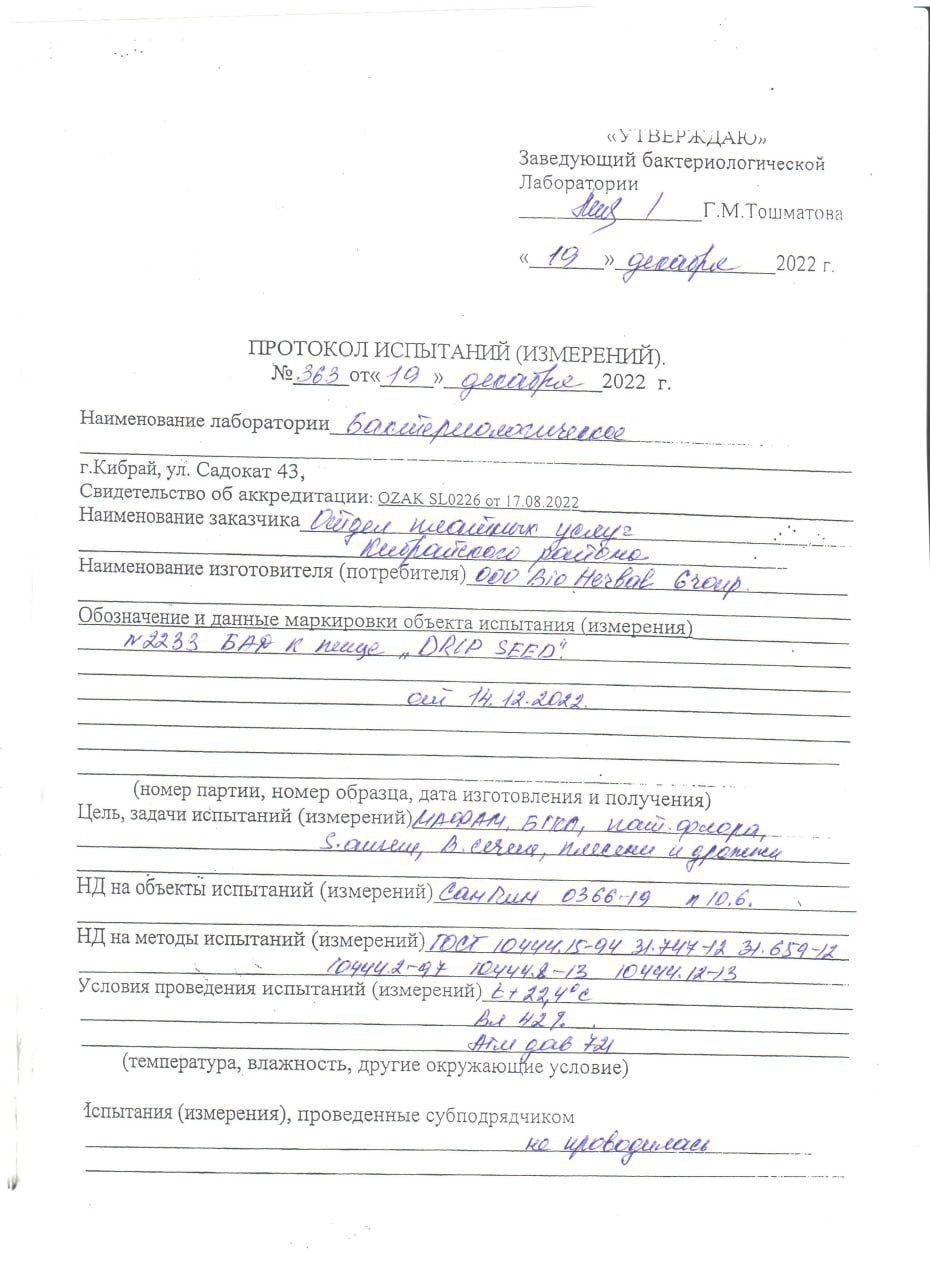 «УТВЕРЖДАЮ»
Заведующий бактериологической
Лаборатории
Г.М.Тошматова
« 19 » декабря 2022 г.
ПРОТОКОЛ ИСПЫТАНИЙ (ИЗМЕРЕНИЙ).
№ 363 от« 19 » декабря 2022 г.
Наименование лаборатории Бактериологическое
г.Кибрай, ул. Садокат 43,
Свидетельство об аккредитации: OZAK SL0226 от 17.08.2022
Наименование заказчика Отдел платных услуг
Кибрайского района
Наименование изготовителя (потребителя) ООО Bio Herbal Group.
Обозначение и данные маркировки объекта испытания (измерения)
N2233 БАД к пище „DRIP SEED“.
от 14.12.2022.
(номер партии, номер образца, дата изготовления и получения)
Цель, задачи испытаний (измерений) МАФАМ, БГКП, пат.флора,
S.aureu, B.cereus, плесени и дрожжи
НД на объекты испытаний (измерений) СанПин 0366-19 п 10.6.
НД на методы испытаний (измерений) ГОСТ 10444.15-94 31.747-12 31.659-12
10444.2-97 10444.8-13 10444.12-13
Условия проведения испытаний (измерений) t+22,4°c
Вл 42%.
Атм дав 721
(температура, влажность, другие окружающие условие)
Испытания (измерения), проведенные субподрядчиком
не проводилась